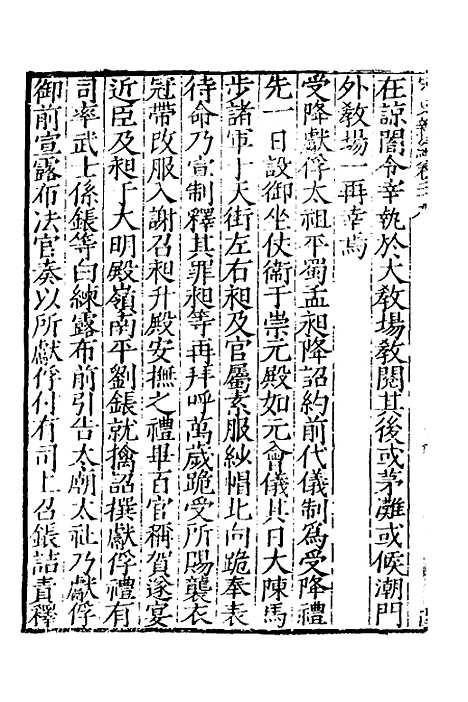 在諒闇令宰執於大教場教閱其後或茅灘或候潮門
外教場一再幸焉
受降獻俘太祖平蜀孟昶降詔約前代儀制爲受降禮
先一日設御坐仗衛于崇元殿如元會儀其日大陳馬
步諸軍于天街左右昶及官屬素服紗帽北向跪奉表
待命乃宣制釋其罪昶等再拜呼萬歲跪受所賜襲衣
冠帶改服入謝召昶升殿安撫之禮畢百官稱賀遂宴
近臣及昶于大明殿嶺南平劉鋹就擒詔撰獻俘禮有
司率武士係鋹等白練露布前引告太廟太社乃獻俘
御前宣露布法官奏以所獻俘付有司上召鋹詰責釋